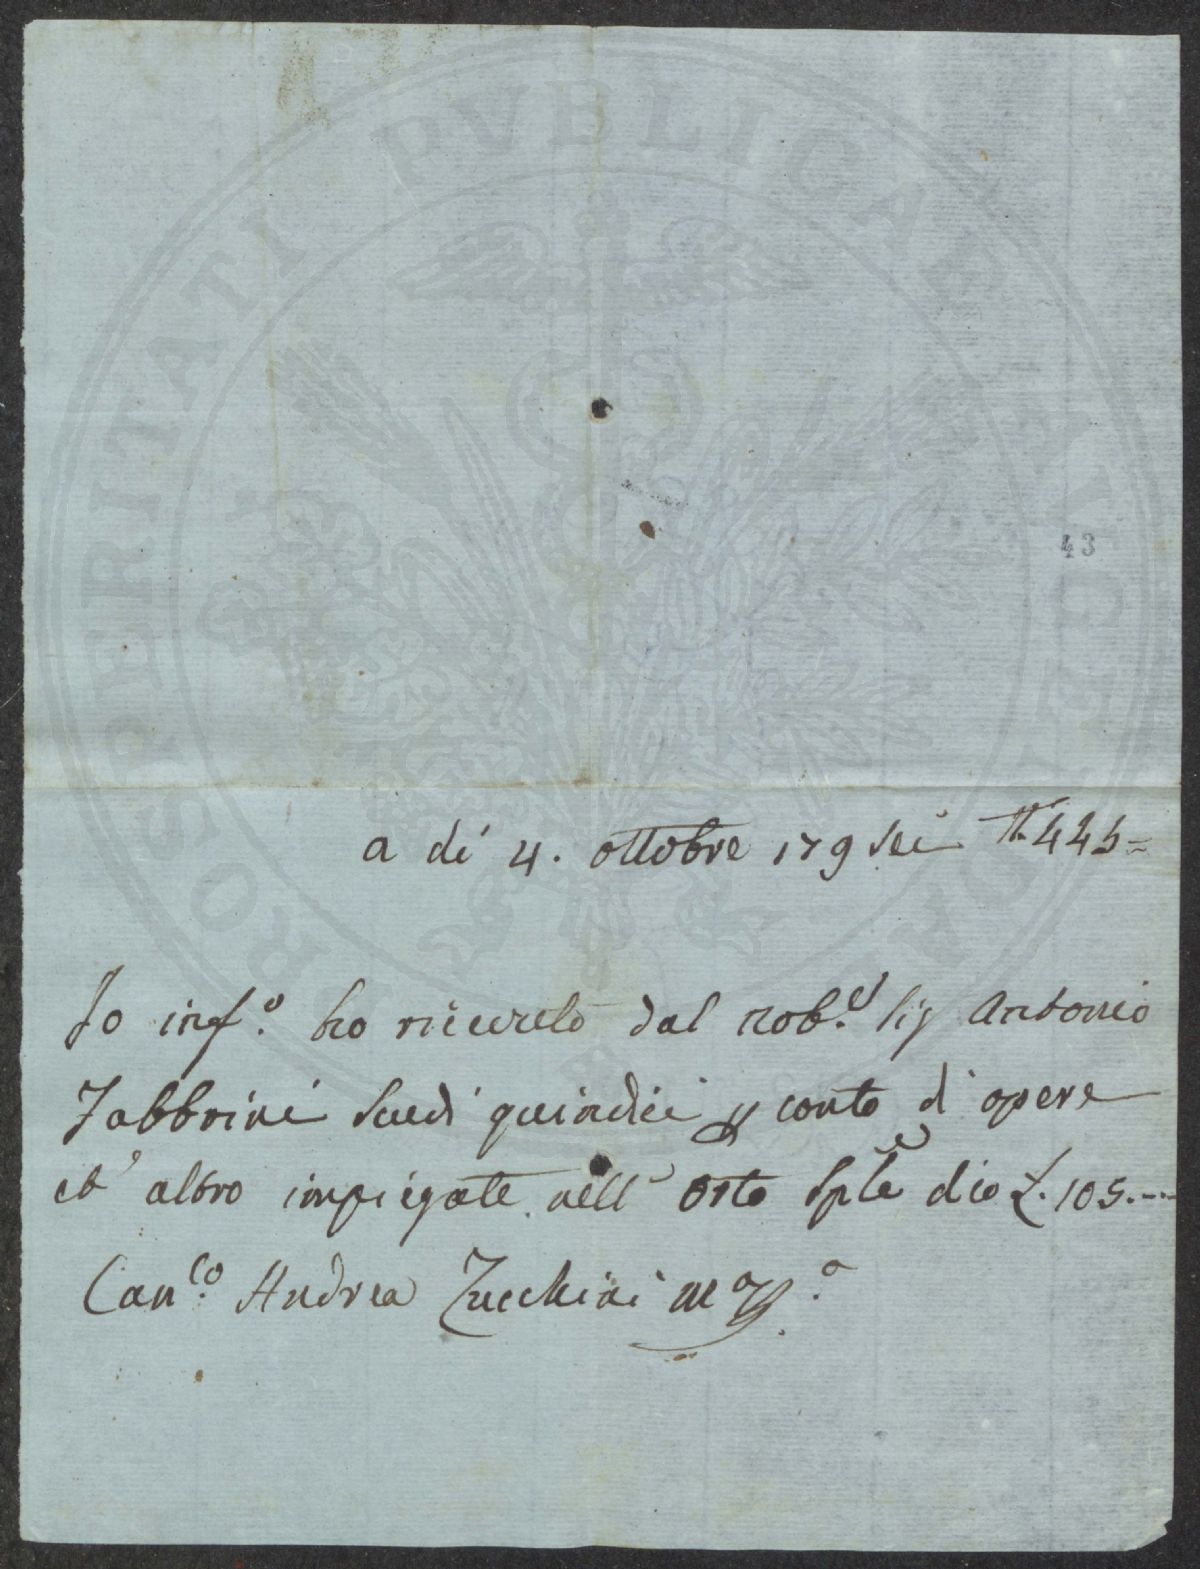 PROSPERITATI PVBLICAE AVGENDAE
43
a di 4. ottobre 179sei
Io inf.o ho ricevuto dal nob.e Sig Antonio
Fabbrini Scudi quindici p conto d'opere
ed altro impiegate nell' Orto Sp.le dico £. 105.--
Can.co Andrea Zucchini